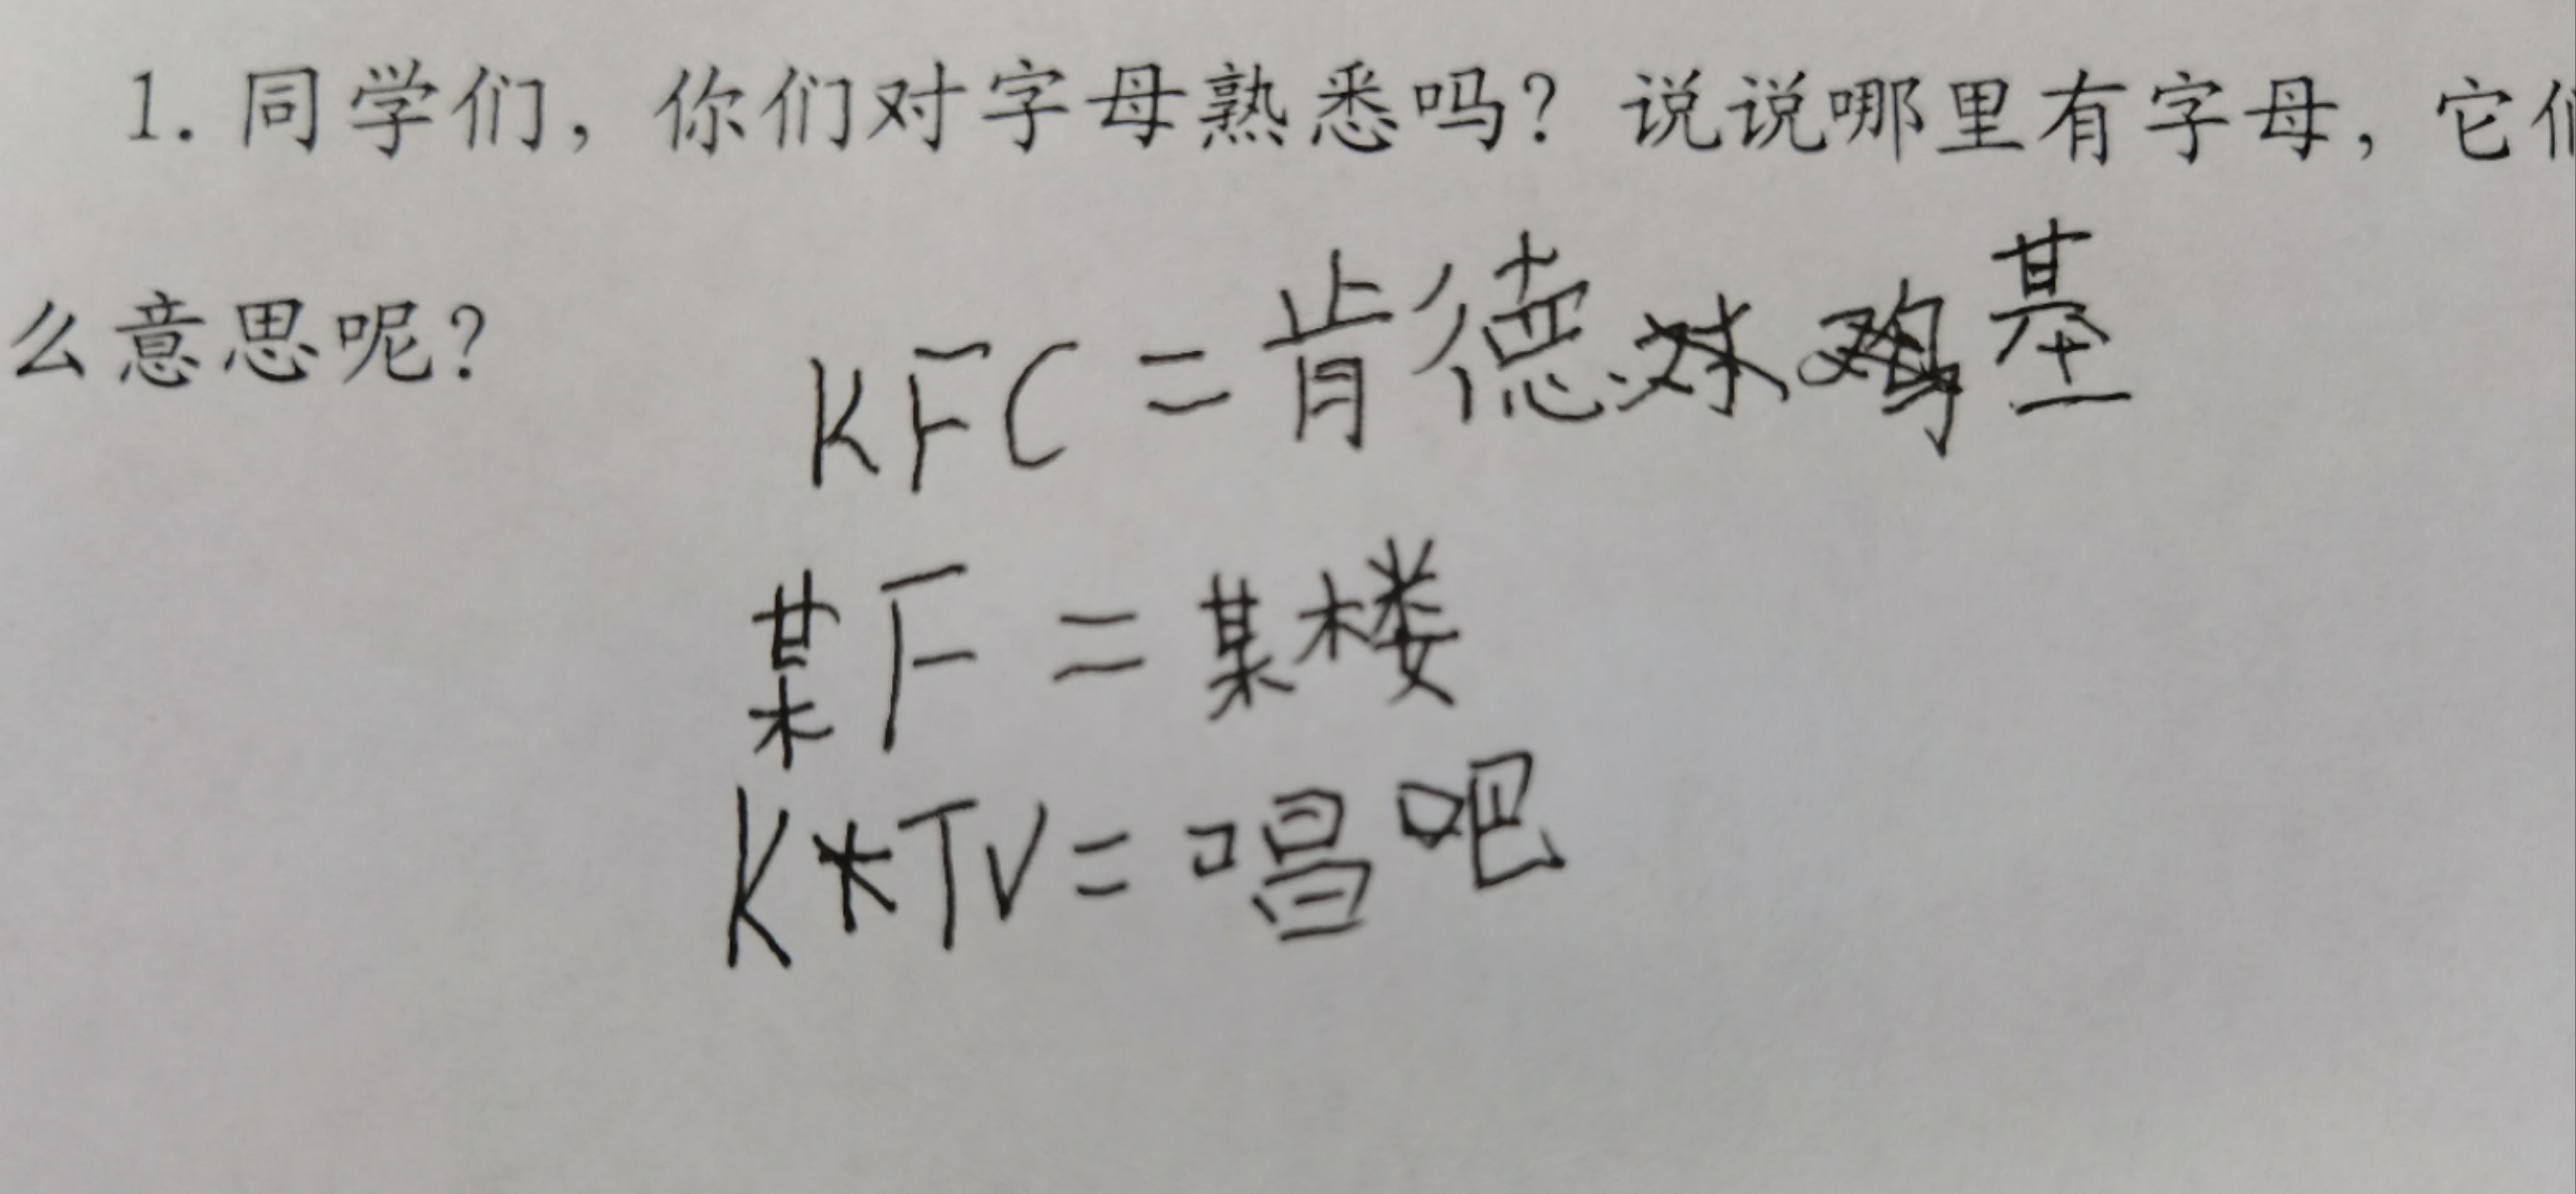 1. 同学们，你们对字母熟悉吗？说说哪里有字母，它们
么意思呢？
KFC=肯德基
某F=某楼
KTV=唱吧